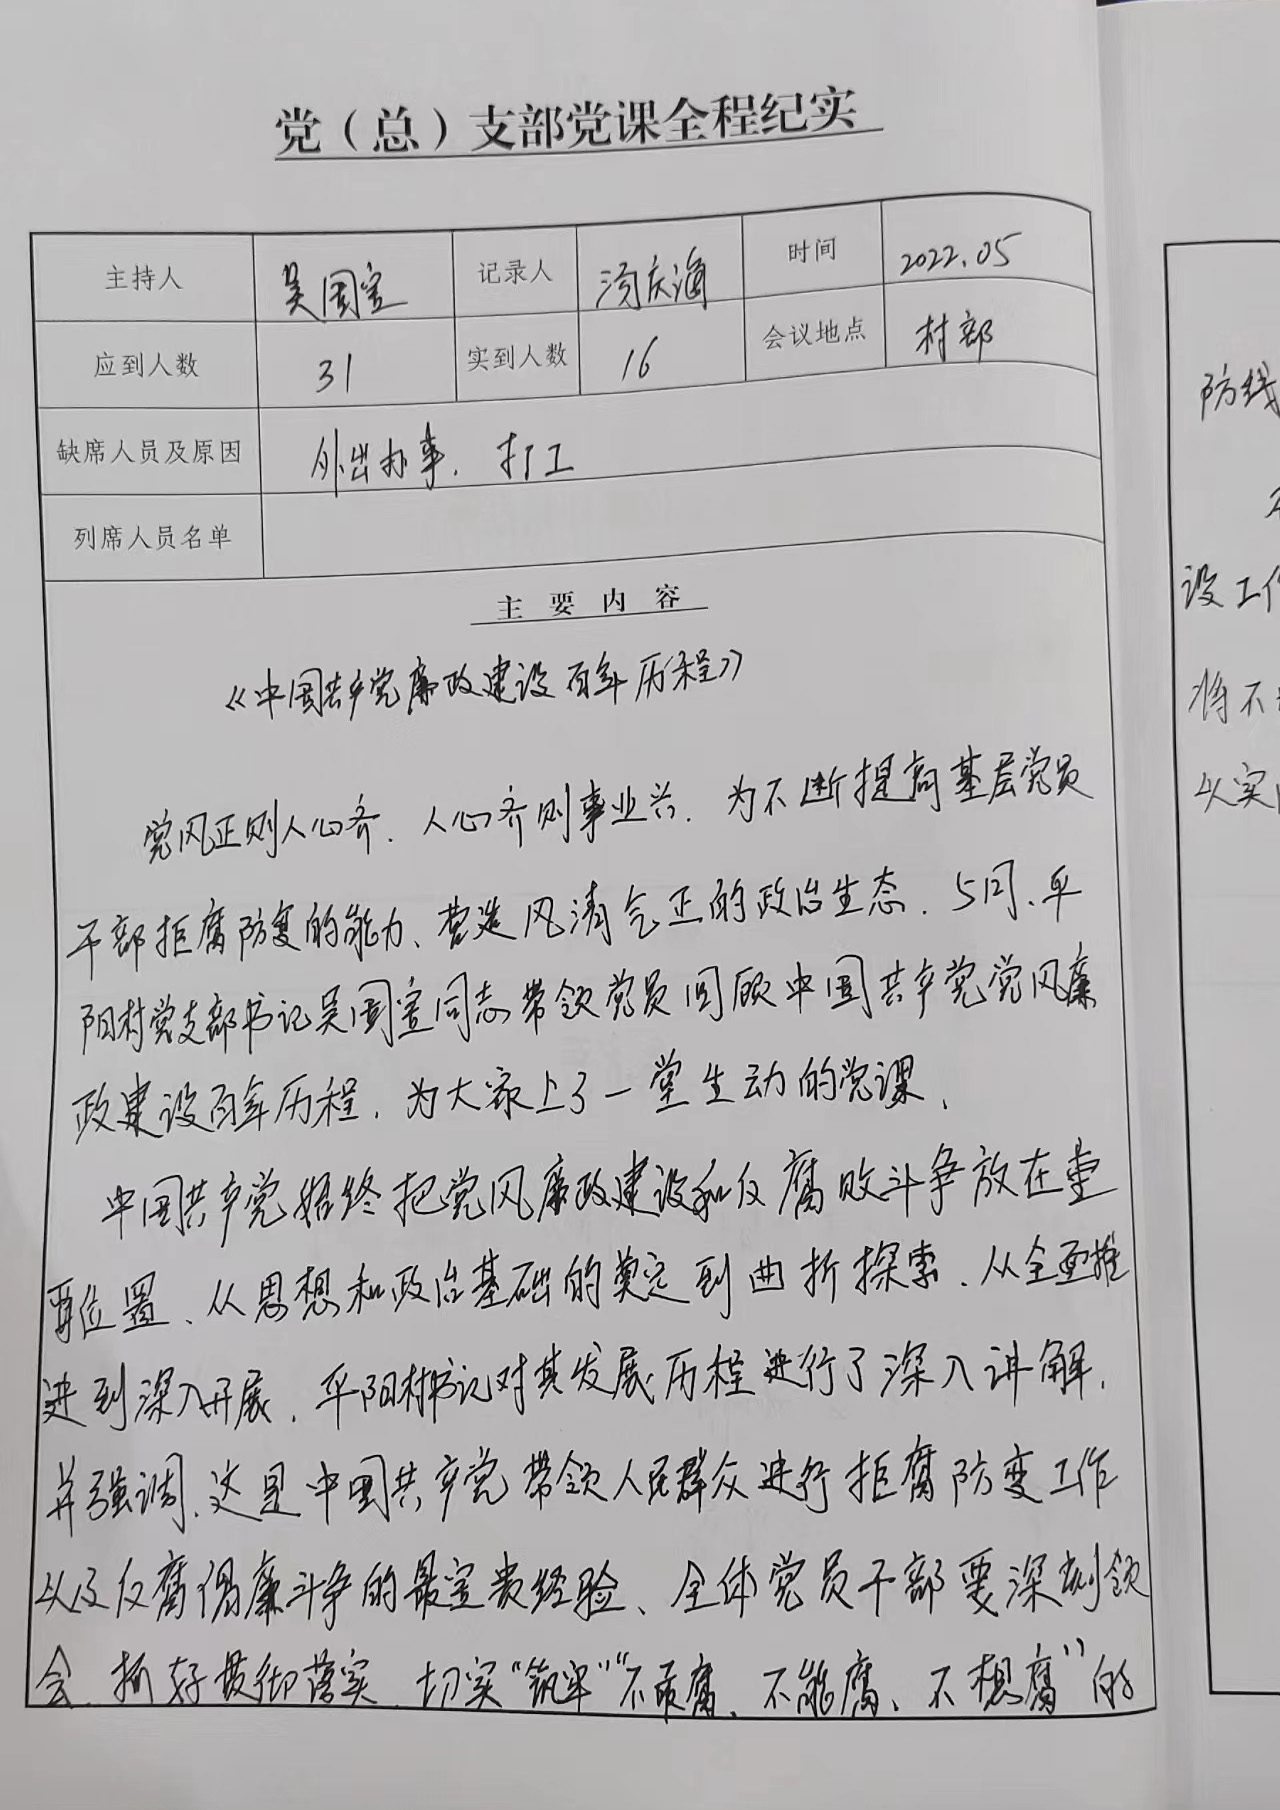 党（总）支部党课全程纪实
主持人 吴国宝 记录人 汤庆海 时间 2022.05
应到人数 31 实到人数 16 会议地点 村部
缺席人员及原因 外出办事、打工
列席人员名单
主要内容
《中国共产党廉政建设百年历程》
党风正则人心齐、人心齐则事业兴、为不断提高基层党员
干部拒腐防变的能力、营造风清气正的政治生态、5月、平
阳村党支部书记吴国宝同志带领党员回顾中国共产党党风廉
政建设百年历程、为大家上了一堂生动的党课、
中国共产党始终把党风廉政建设和反腐败斗争放在重
要位置、从思想和政治基础的奠定到曲折探索、从全面推
进到深入开展、平阳村书记对其发展历程进行了深入讲解、
并强调、这是中国共产党带领人民群众进行拒腐防变工作
以及反腐倡廉斗争的最宝贵经验、全体党员干部要深刻领
会、抓好贯彻落实、切实“筑牢”“不敢腐、不能腐、不想腐”的
防线
设工作
将不
以实